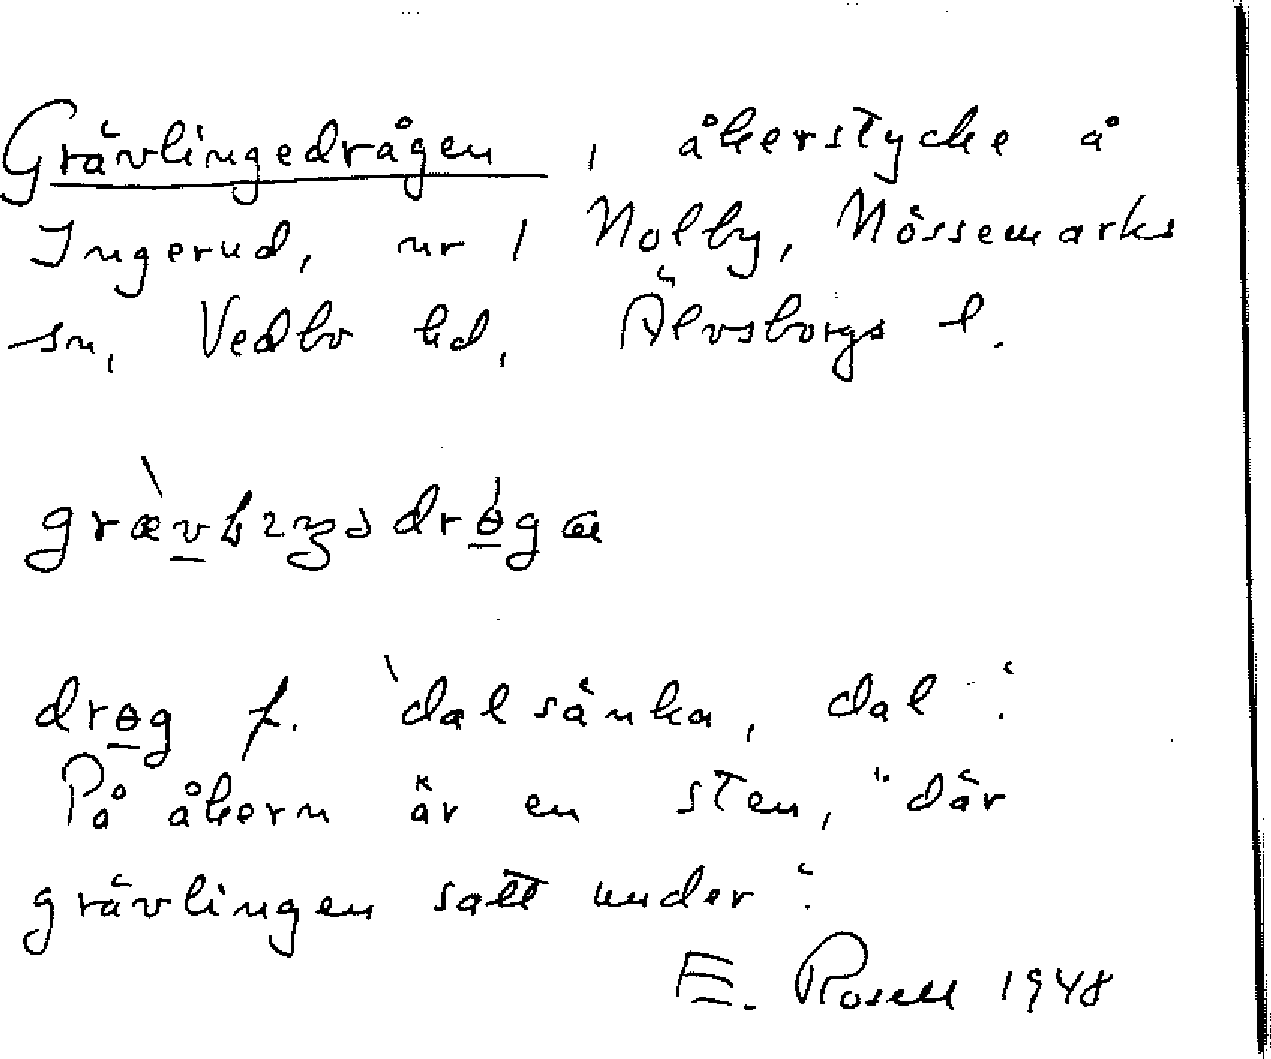 Grävlingedrågen, åkerstycke å
Ingerud, nr 1 Nolby, Nössemarks
sn, Vedbo hd, Älvsborgs l.
drɵg f. 'dalsänka, dal'.
På åkern är en sten, "där
grävlingen satt under".
E. Rosell 1948